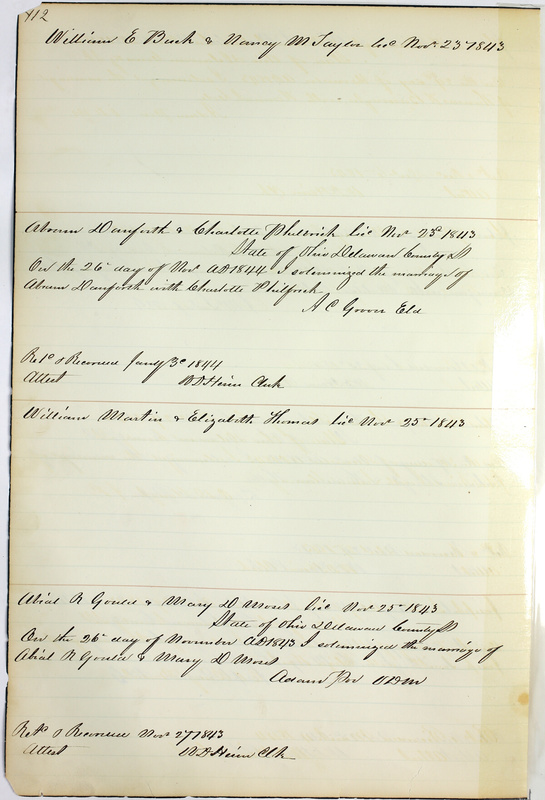 412
William E Buck & Nancy M Taylor Lic Nov. 23d 1843
Abram Danforth & Charlotte Philbrick Lic Nov 23d 1843
State of Ohio Delaware County SS
On the 26th day of Nov AD 1844 I solemnized the marriage of
Abram Danforth with Charlotte Philbrick
A C Grover Eld
Retd & Recorded Jany 3d 1844
Attest W D Heim Clerk
William Martin & Elizabeth Thomas Lic Nov 25th 1843
Abial R Gould & Mary D Moses Lic Nov 25th 1843
State of Ohio Delaware County SS
On the 26th day of November AD 1843 I solemnized the marriage of
Abial R Gould & Mary D Moses
Adam Poe
Retd & Recorded Nov 27 1843
Attest W D Heim Clk